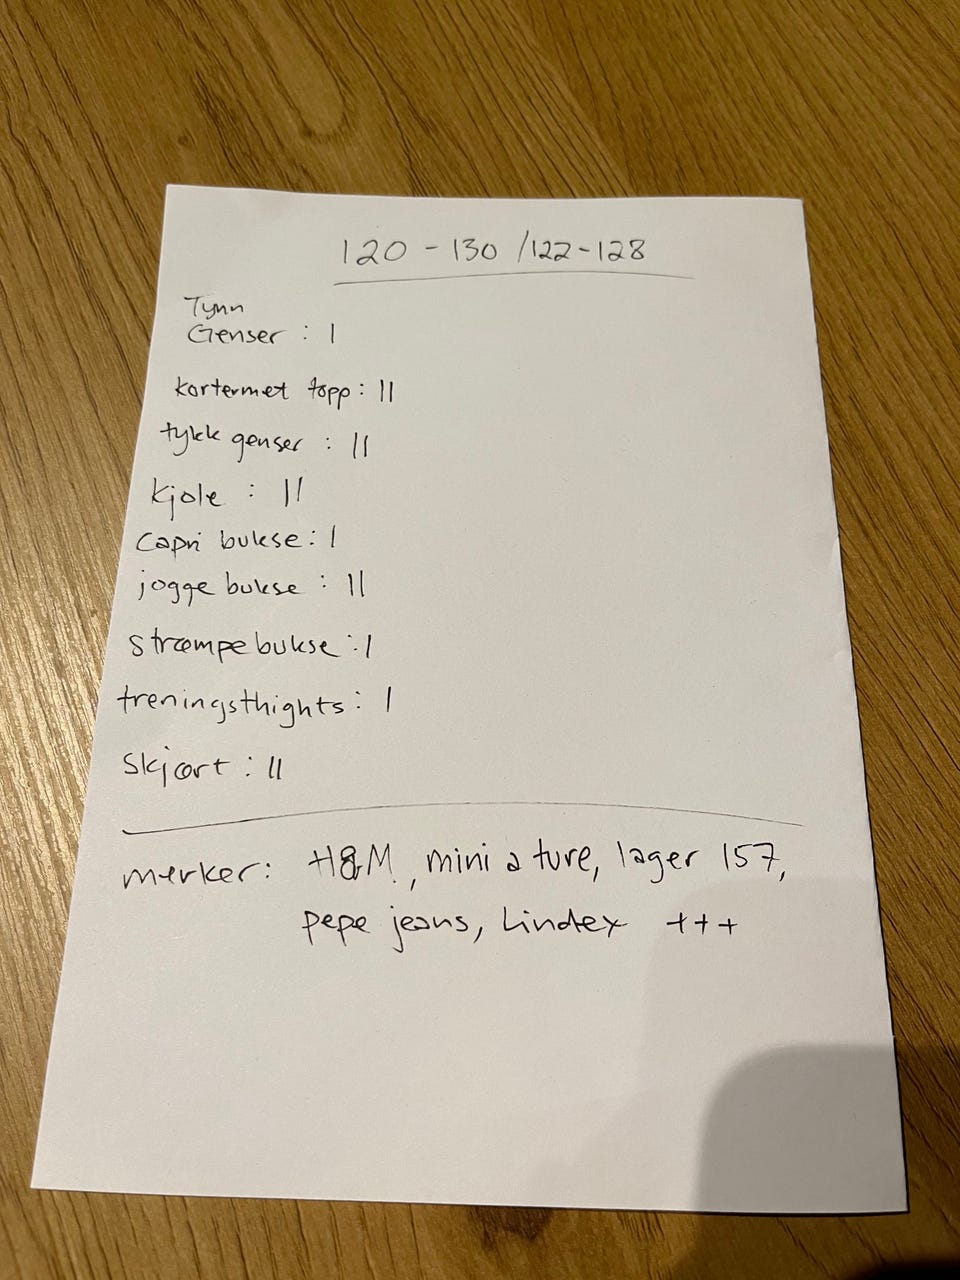 120 - 130 / 122-128
Tynn
Genser : |
kortermet topp : ||
tykk genser : ||
kjole : ||
capri bukse : |
jogge bukse : ||
strømpebukse : |
treningsthights : |
skjørt : ||
merker: H&M, mini a ture, lager 157,
pepe jeans, Lindex +++